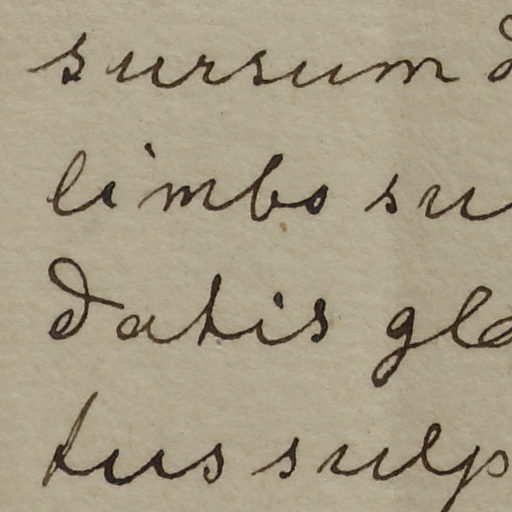 sursum
limbo su
datis gla
tus sulp